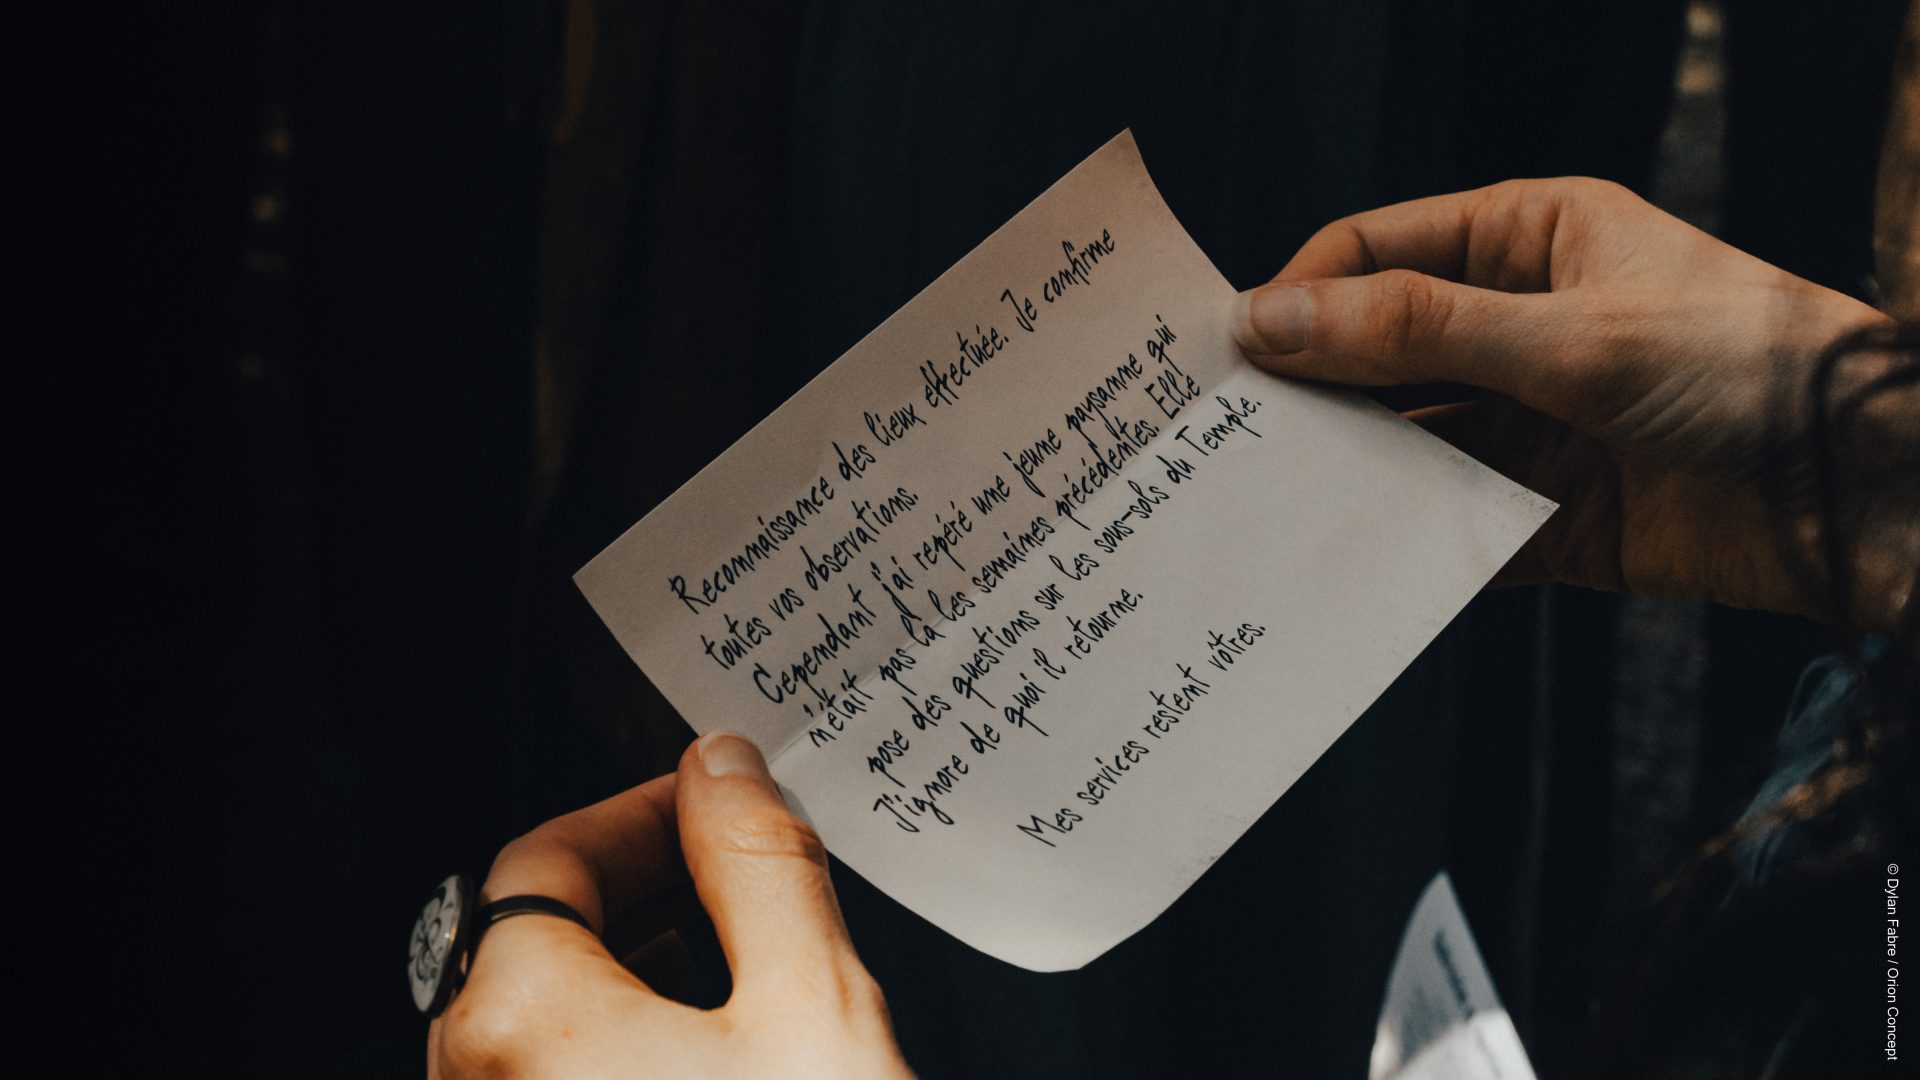 Reconnaissance des lieux effectuée. Je confirme
toutes vos observations.
Cependant j'ai repéré une jeune paysanne qui
n'était pas là les semaines précédentes. Elle
pose des questions sur les sous-sols du Temple.
J'ignore de quoi il retourne.
Mes services restent vôtres.
© Dylan Fabre / Orion Concept